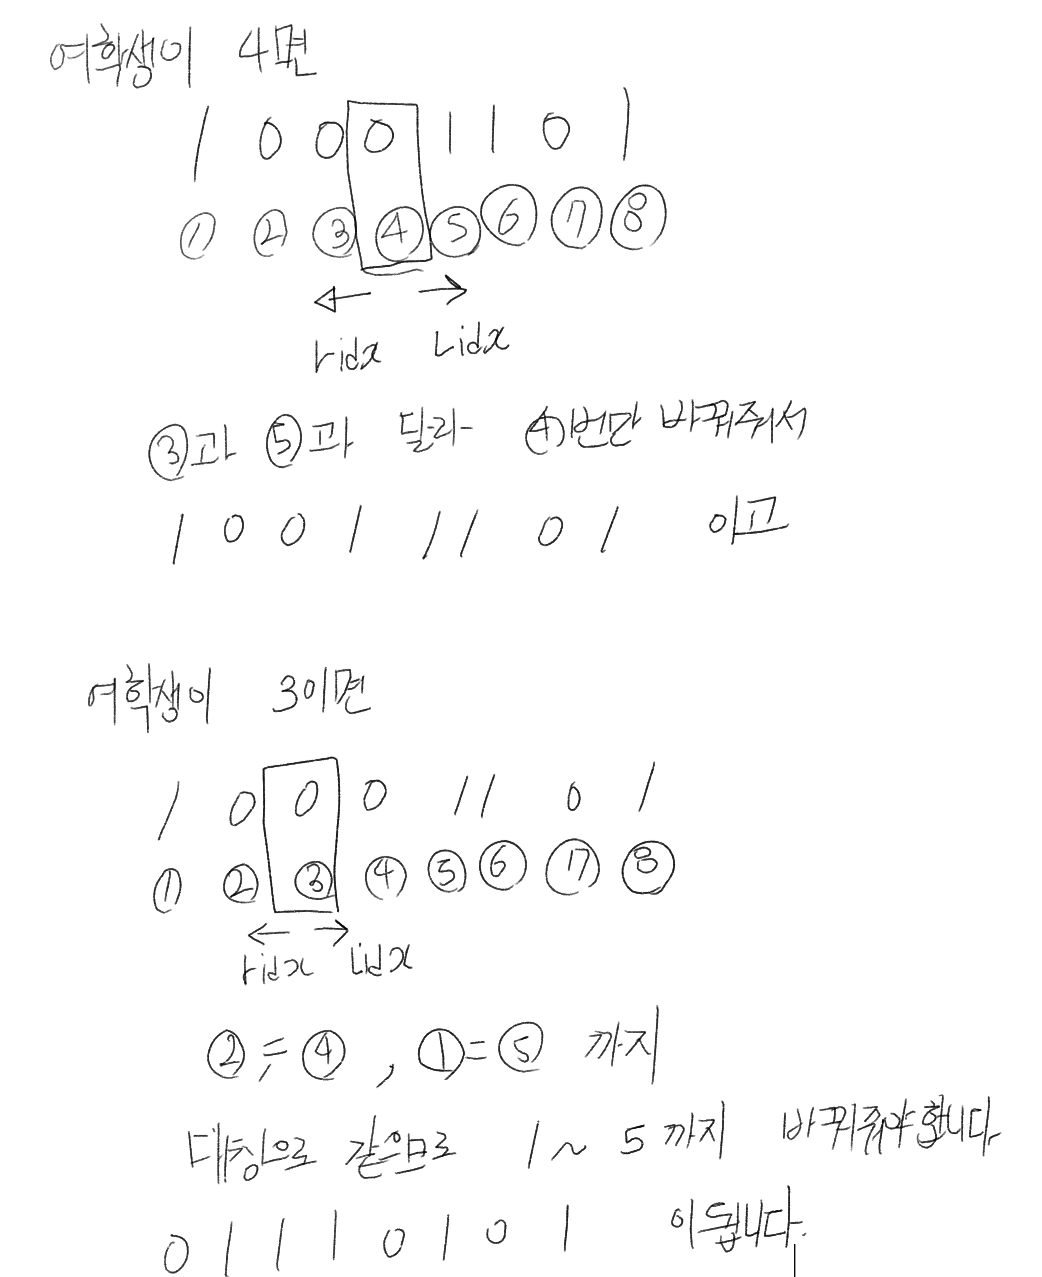 여학생이 4면
1 0 0 0 1 1 0 1
① ② ③ ④ ⑤ ⑥ ⑦ ⑧
ridx Lidx
③과 ⑤과 달라 ④번만 바꿔줘서
1 0 0 1 1 1 0 1 이고
여학생이 3이면
1 0 0 0 1 1 0 1
① ② ③ ④ ⑤ ⑥ ⑦ ⑧
ridx Lidx
② = ④ , ① = ⑤ 까지
대칭으로 같으므로 1 ~ 5 까지 바꿔줘야합니다.
0 1 1 1 0 1 0 1 이됩니다.